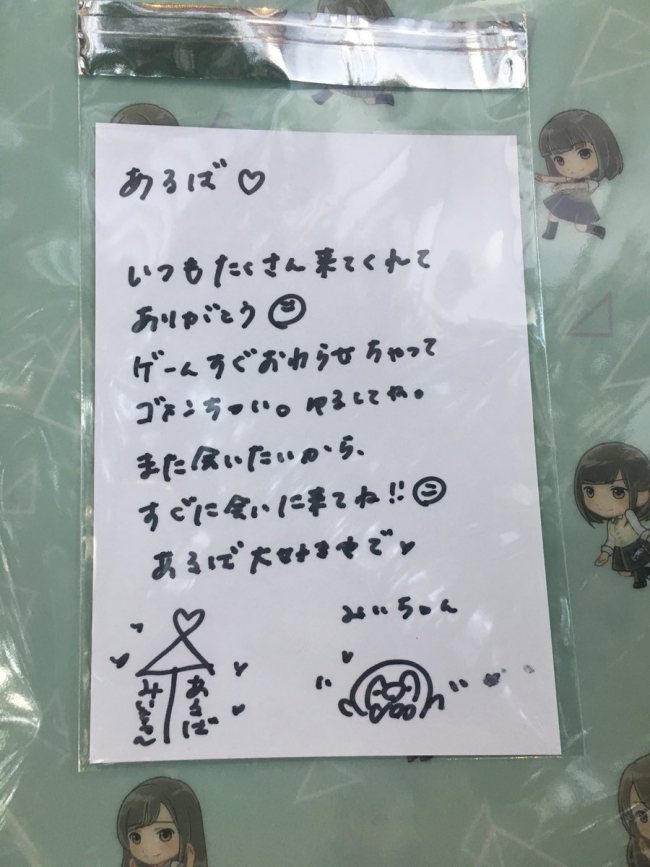 あるば♡
いつもたくさん来てくれて
ありがとう
ゲームすぐおわらせちゃって
ゴメンちゃい。ゆるしてね。
また会いたいから、
すぐに会いに来てね!!
あるば大好きすぎ♥
みいちゃん
あるば